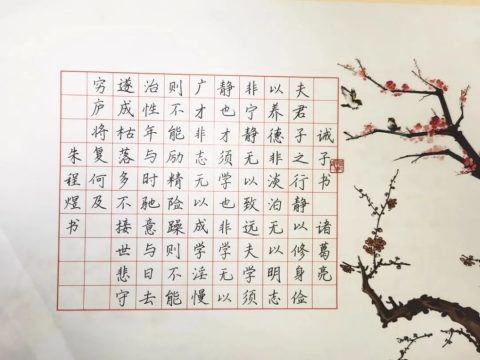 诫子书 诸葛亮
夫君子之行静以修身俭
以养德非淡泊无以明志
非宁静无以致远夫学须
静也才须学也非学无以
广才非志无以成学淫慢
则不能励精险躁则不能
治性年与时驰意与日去
遂成枯落多不接世悲守
穷庐将复何及
朱程煜书